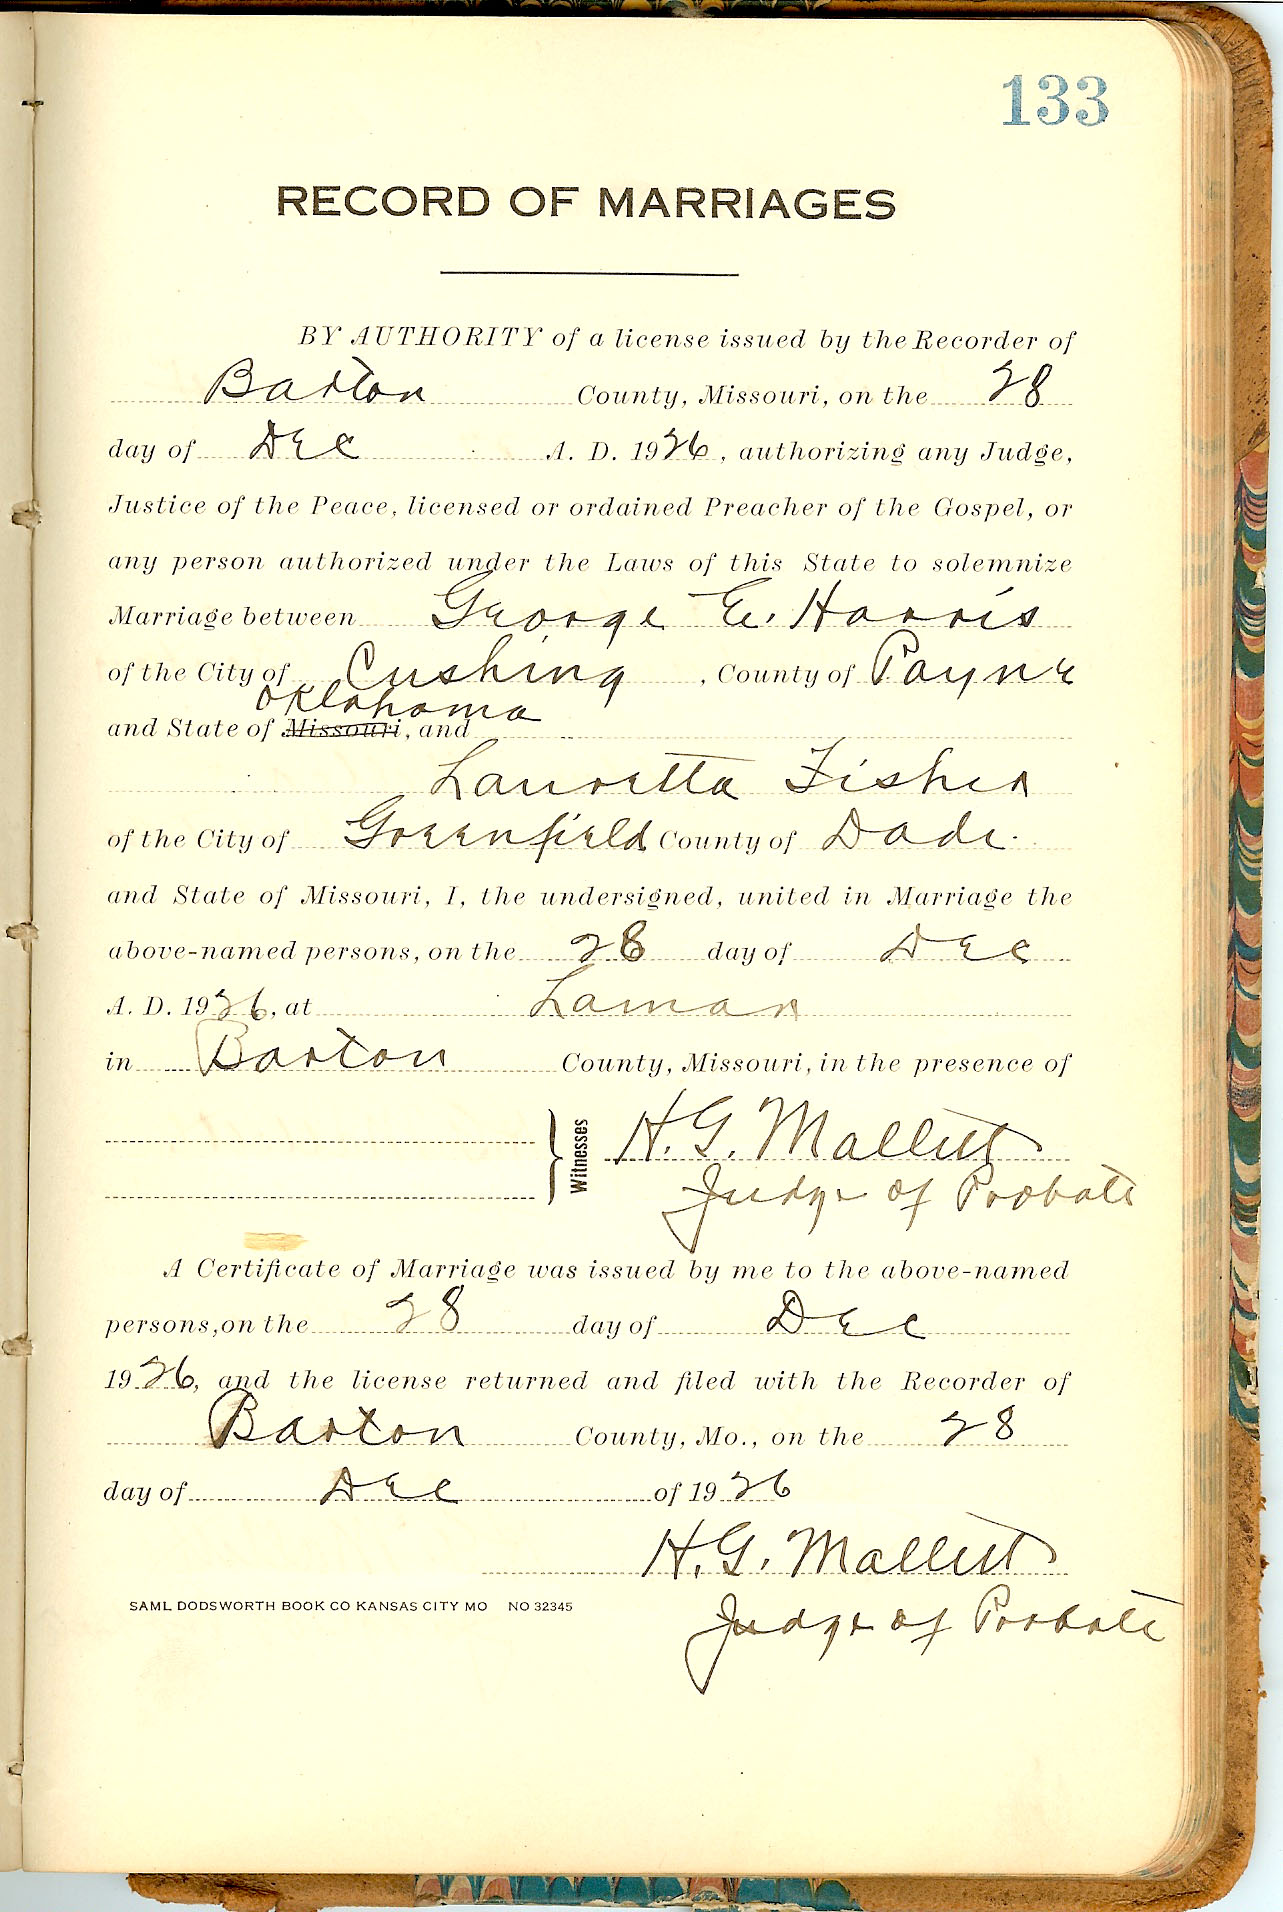 133
RECORD OF MARRIAGES
BY AUTHORITY of a license issued by the Recorder of
Barton County, Missouri, on the 28
day of Dec A. D. 1926, authorizing any Judge,
Justice of the Peace, licensed or ordained Preacher of the Gospel, or
any person authorized under the Laws of this State to solemnize
Marriage between George E. Harris
of the City of Cushing, County of Payne
Oklahoma
and State of Missouri, and
Lauretta Fisher
of the City of Greenfield County of Dade.
and State of Missouri, I, the undersigned, united in Marriage the
above-named persons, on the 28 day of Dec
A. D. 1926, at Lamar
in Barton County, Missouri, in the presence of
Witnesses H. G. Mallett
Judge of Probate
A Certificate of Marriage was issued by me to the above-named
persons, on the 28 day of Dec
1926, and the license returned and filed with the Recorder of
Barton County, Mo., on the 28
day of Dec of 1926
H. G. Mallett
SAML DODSWORTH BOOK CO KANSAS CITY MO NO 32345
Judge of Probate